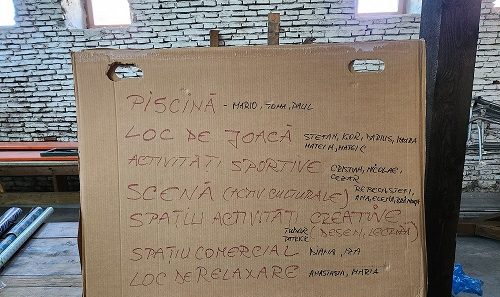 PISCINĂ - MARIO, TOMA, PAUL
LOC DE JOACĂ STEFAN, IGOR, DARIUS, MAYRA
MATEI M, MATEI C
ACTIVITĂTI SPORTIVE CRISTIAN, NICOLAE,
CEZAR
SCENĂ (ACTIV CULTURALE) REBECI, STEFI,
ANA, ELENA,
SPATIU ACTIVITĂTI CREATIVE
TUDOR (DESEN, LECTURĂ)
PATRICK
SPATIU COMERCIAL DIANA,
LOC DE RELAXARE ANASTASIA, MARIA